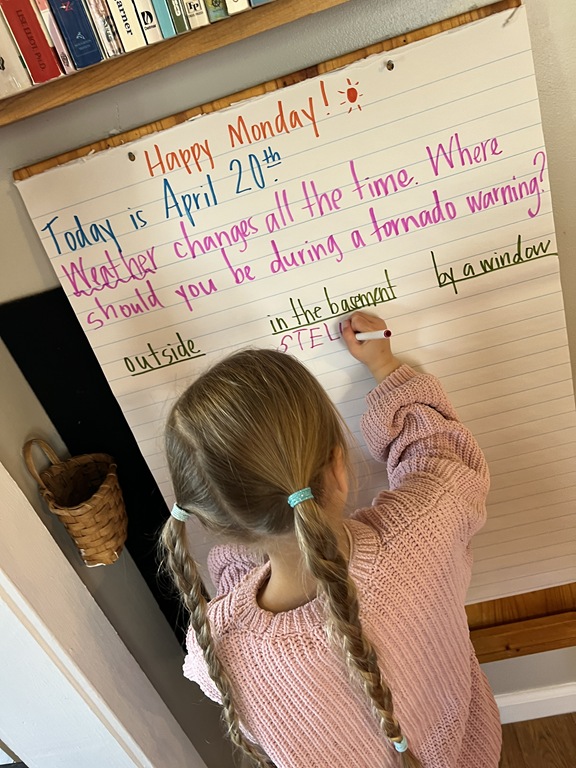 LISE ELIOT, PH.D.
arner
Happy Monday!
Today is April 20th
Weather changes all the time. Where
should you be during a tornado warning?
outside
in the basement
by a window
STEL